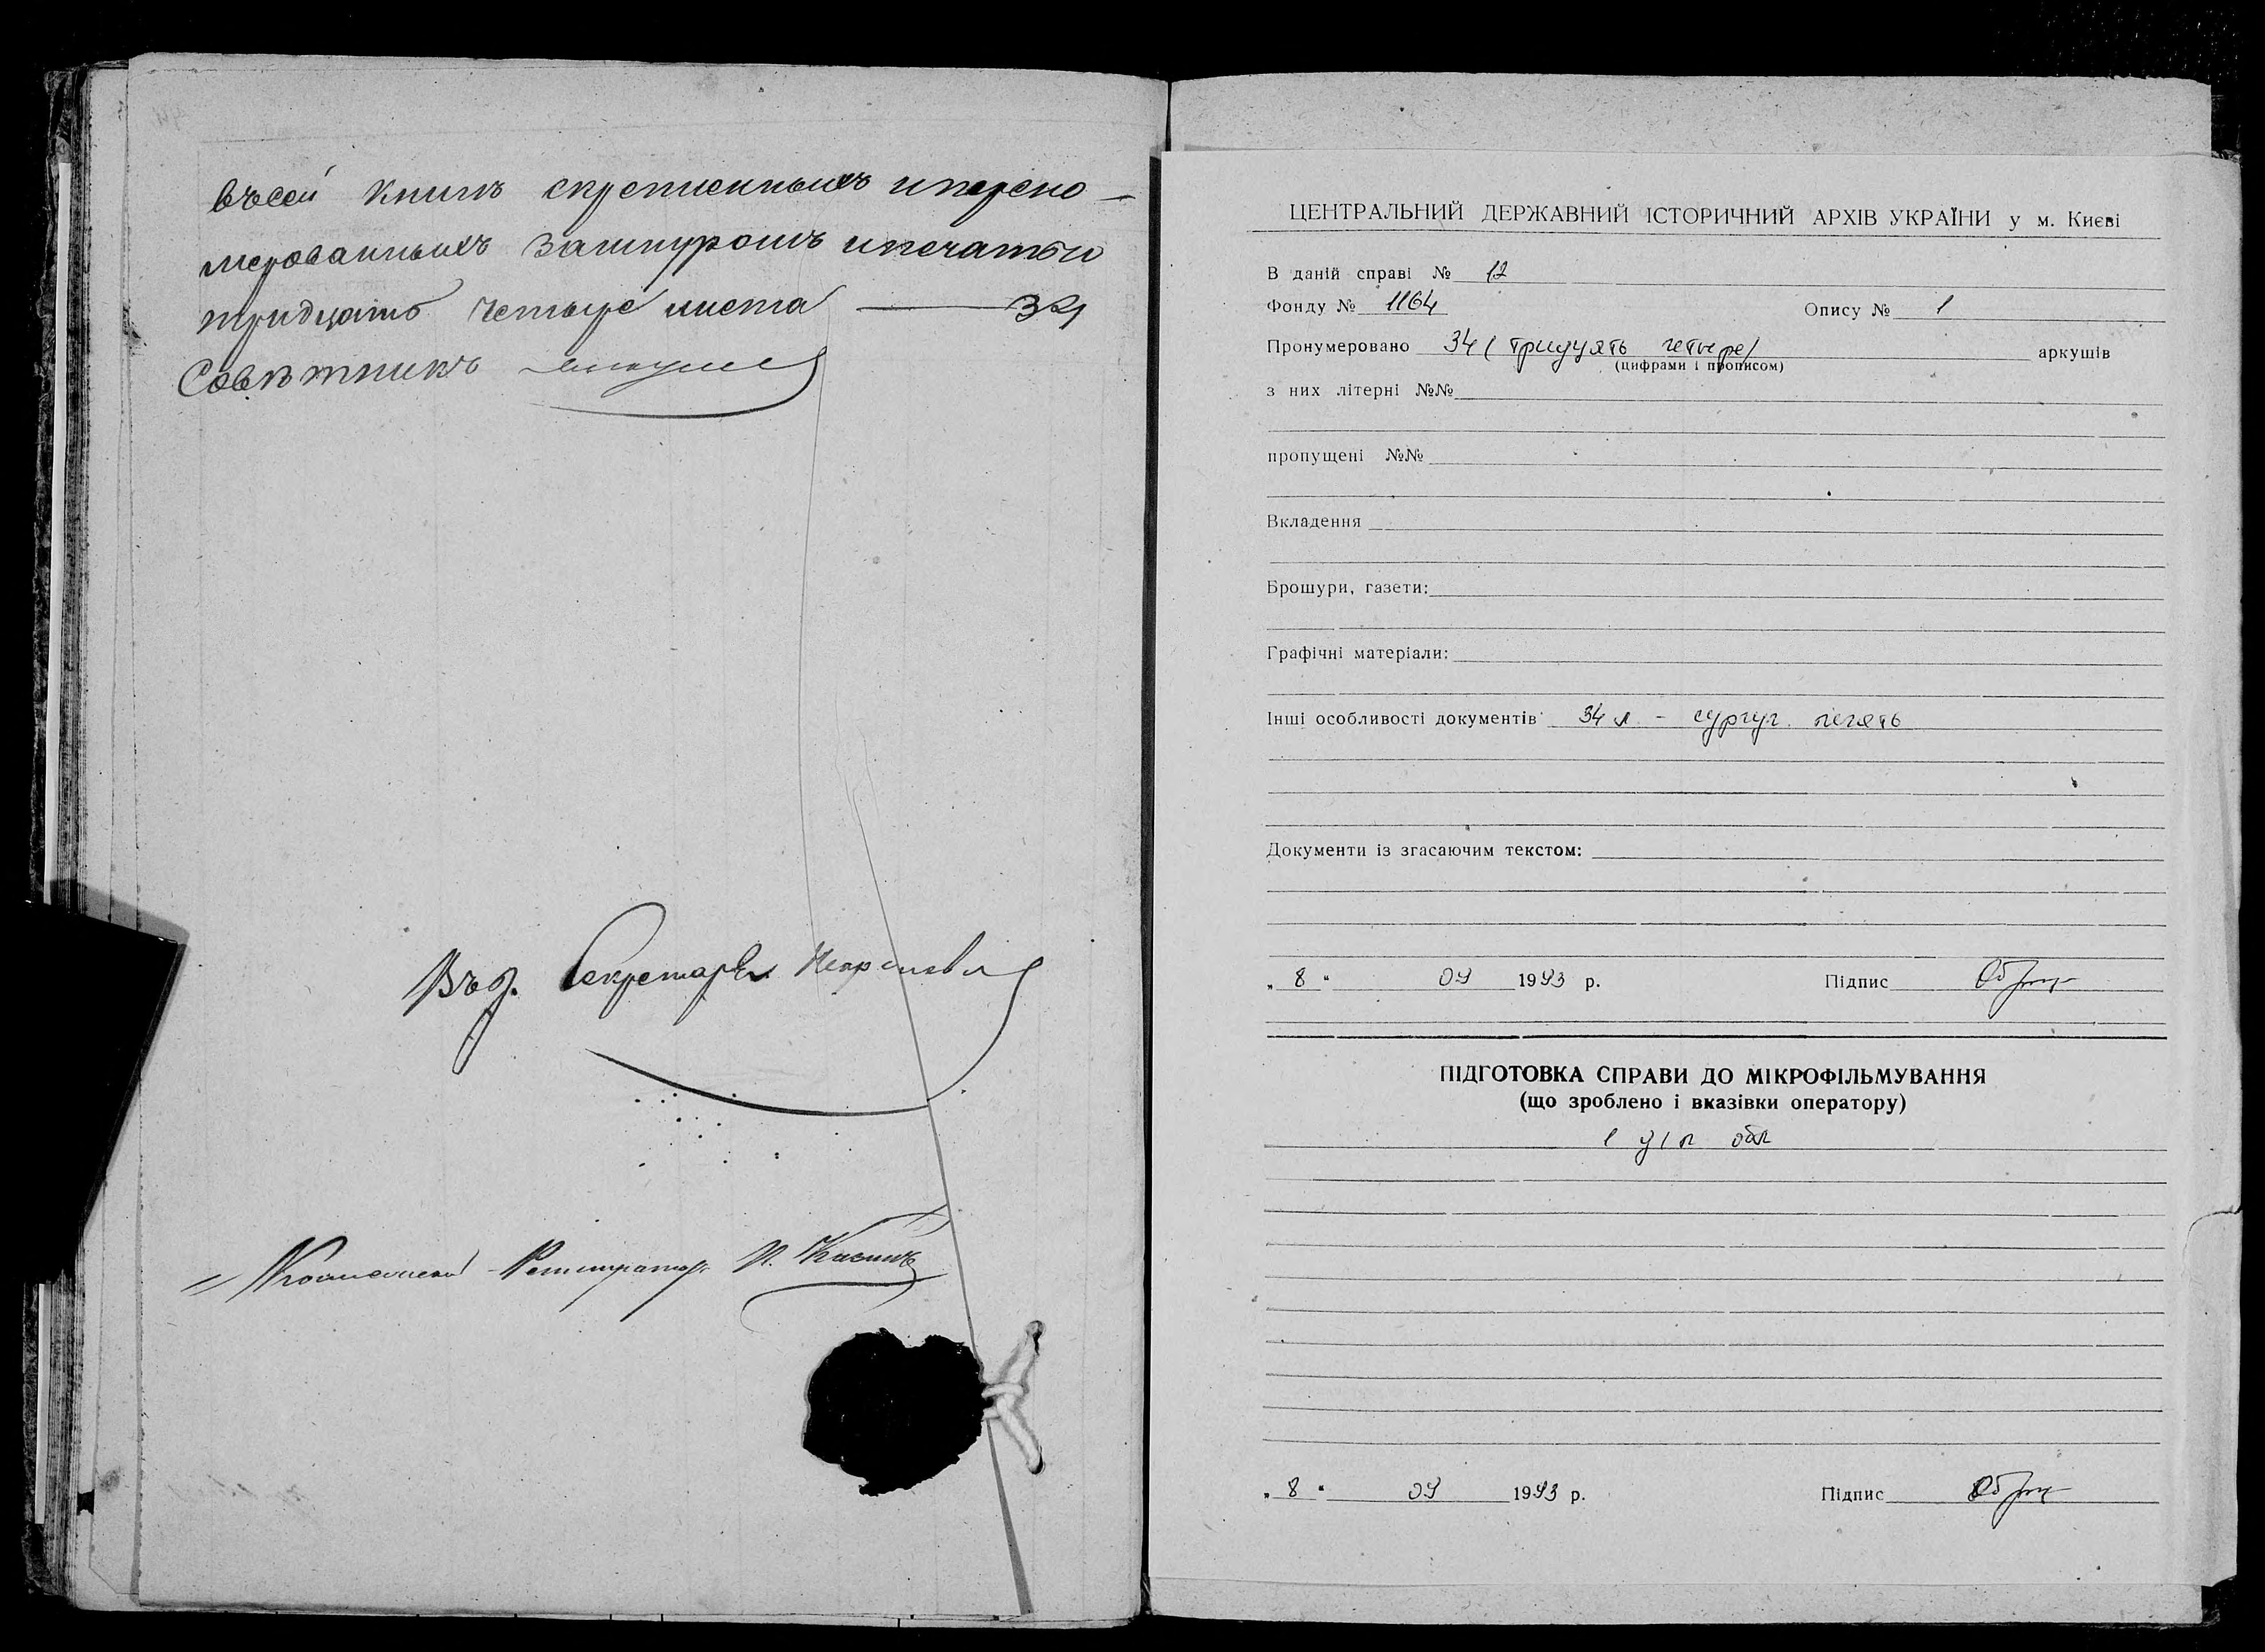 въсей книгѣ скрепленныхъ иперено-
мерованныхъ зашнуромъ ипечатью
тридцать четыре листа — 34
Совѣтникъ
Секретарь
Регистраторъ
ЦЕНТРАЛЬНИЙ ДЕРЖАВНИЙ ІСТОРИЧНИЙ АРХІВ УКРАЇНИ у м. Києві
В даній справі № 12
Фонду № 1164 Опису № 1
Пронумеровано 34 (тридцять четыре) аркушів
(цифрами і прописом)
з них літерні №№
пропущені №№
Вкладення
Брошури, газети:
Графічні матеріали:
Інші особливості документів 34 л - сургуч. печать
Документи із згасаючим текстом:
„ 8 “ 09 1993 р. Підпис
ПІДГОТОВКА СПРАВИ ДО МІКРОФІЛЬМУВАННЯ
(що зроблено і вказівки оператору)
„ 8 “ 09 1993 р. Підпис